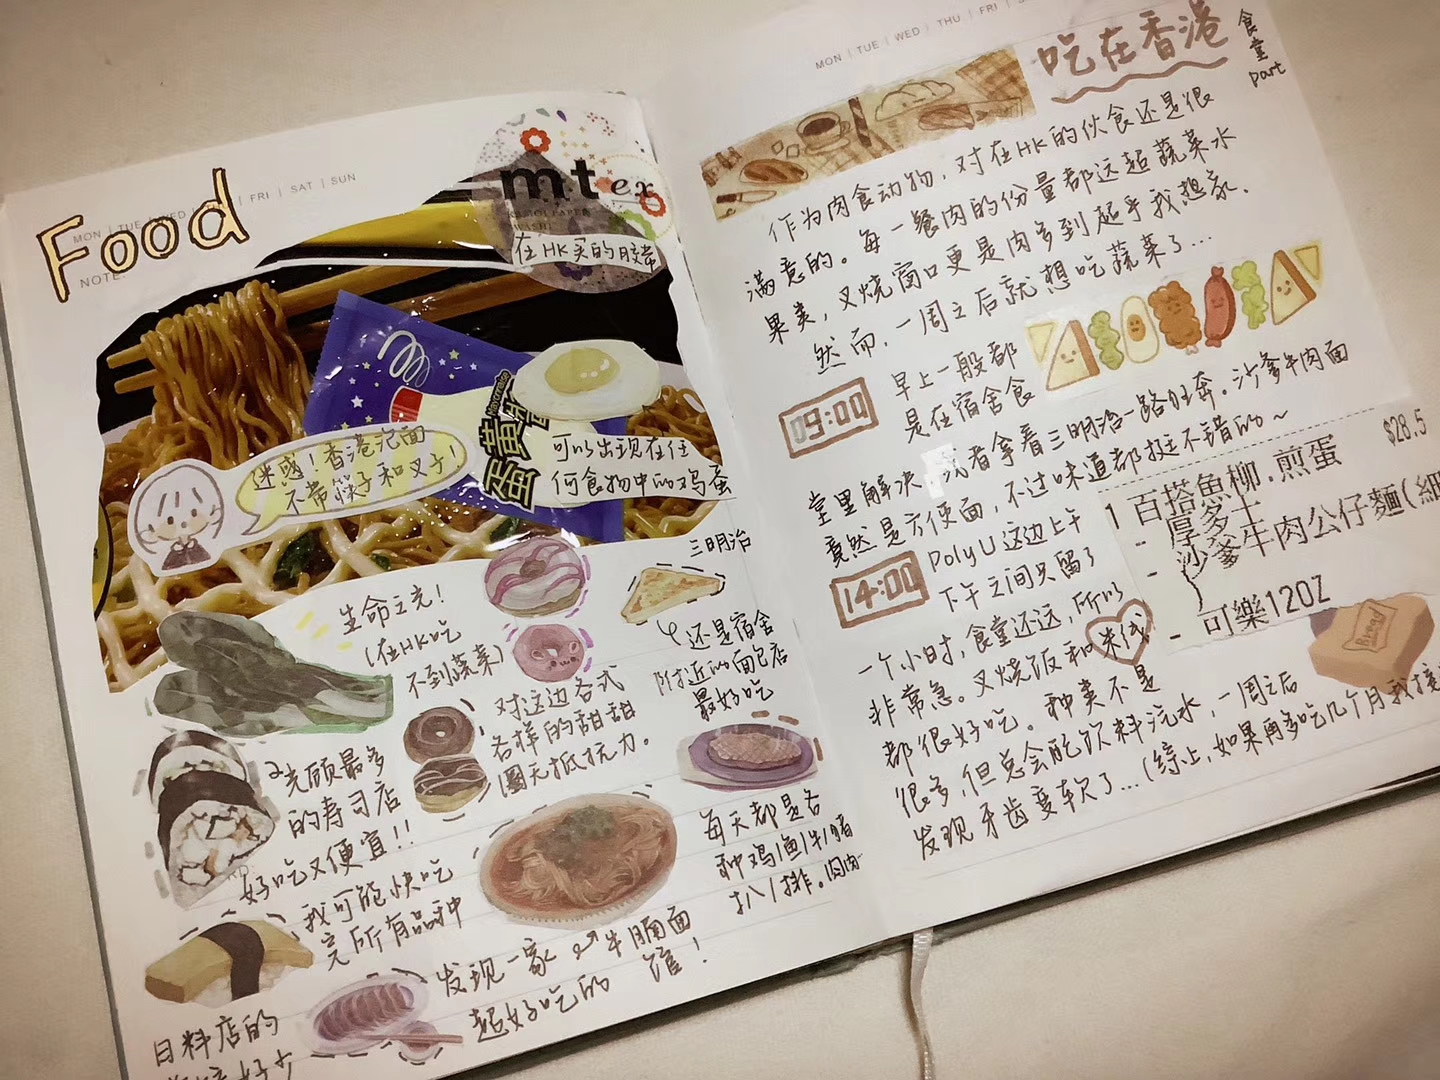 Food
MON | TUE | WED | FRI | SAT | SUN
NOTE
mt ex
在HK买的胶带
迷惑！香港泡面
不带筷子和叉子！
蛋黄
Mayonnaise
可以出现在任
何食物中的鸡蛋
三明治
生命之光！
（在HK吃
不到蔬菜）
还是宿舍
附近的面包店
最好吃
对这边各式
各样的甜甜
圈无抵抗力。
光顾最多
的寿司店
好吃又便宜！！
我可能快吃
完所有品种
每天都是各
种鸡/鱼/牛/猪
扒/排。肉肉
发现一家牛腩面
超好吃的馆！
日料店的
好少
MON | TUE | WED | THU | FRI | S
吃在香港
食堂
part
作为肉食动物，对在HK的伙食还是很
满意的。每一餐肉的份量都远超蔬菜水
果类，叉烧窗口更是肉多到超乎我想象.
然而，一周之后就想吃蔬菜了...
09:00
早上一般都
是在宿舍食
堂里解决，或者拿着三明治一路狂奔。沙爹牛肉面
竟然是方便面，不过味道都挺不错的~
$28.5
1 百搭魚柳.煎蛋
- 厚多士
- 沙爹牛肉公仔麵(細
)
- 可樂12OZ
14:00
PolyU这边上午
下午之间只留了
一个小时，食堂还远，所以
非常急。叉烧饭和米线
都很好吃。种类不是
很多，但总会配饮料汽水，一周之后
发现牙齿变软了...（综上，如果再多吃几个月我接
Bread